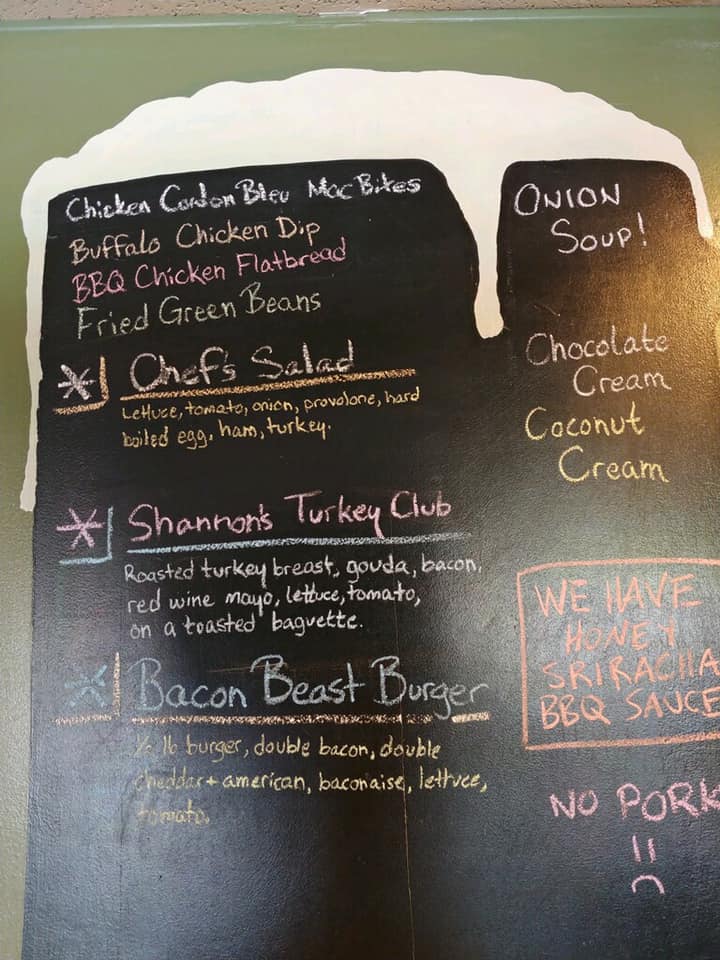 Chicken Cordon Bleu Mac Bites
Buffalo Chicken Dip
BBQ Chicken Flatbread
Fried Green Beans
Chef's Salad
Lettuce, tomato, onion, provolone, hard
boiled egg, ham, turkey.
Shannon's Turkey Club
Roasted turkey breast, gouda, bacon,
red wine mayo, lettuce, tomato,
on a toasted baguette.
Bacon Beast Burger
1/2 lb burger, double bacon, double
cheddar + american, baconaise, lettuce,
tomato.
ONION
SOUP!
Chocolate
Cream
Coconut
Cream
WE HAVE
HONEY
SRIRACHA
BBQ SAUCE
NO PORK